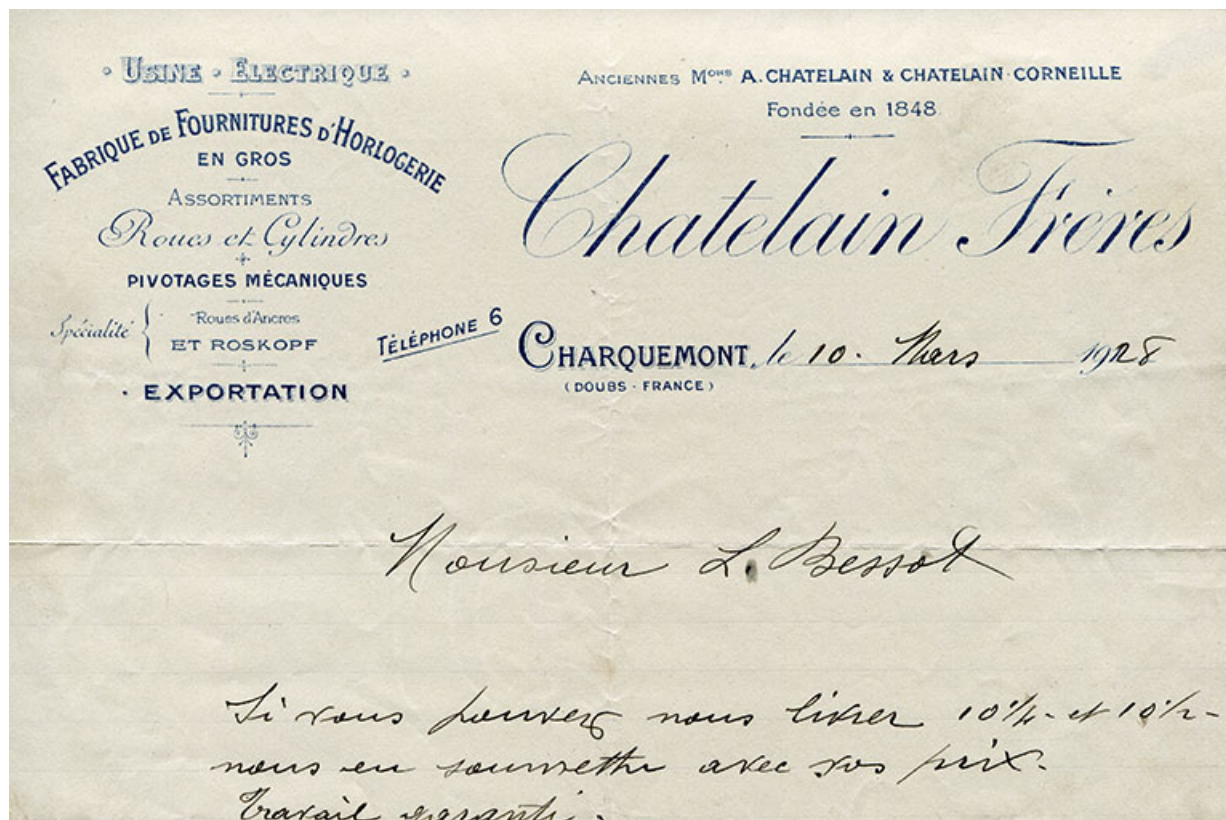 · USINE · ELECTRIQUE ·
FABRIQUE DE FOURNITURES D'HORLOGERIE
EN GROS
ASSORTIMENTS
Roues et Cylindres
PIVOTAGES MÉCANIQUES
Spécialité { Roues d'Ancres
ET ROSKOPF
· EXPORTATION
ANCIENNES Mons A. CHATELAIN & CHATELAIN-CORNEILLE
Fondée en 1848
Chatelain Frères
TÉLÉPHONE 6
CHARQUEMONT, le 10. Mars 1928
(DOUBS - FRANCE)
Monsieur L. Bessot
Si vous pouvez nous livrer 10 1/4 - et 10 1/2 -
nous en soumettre avec vos prix.
Travail garanti.